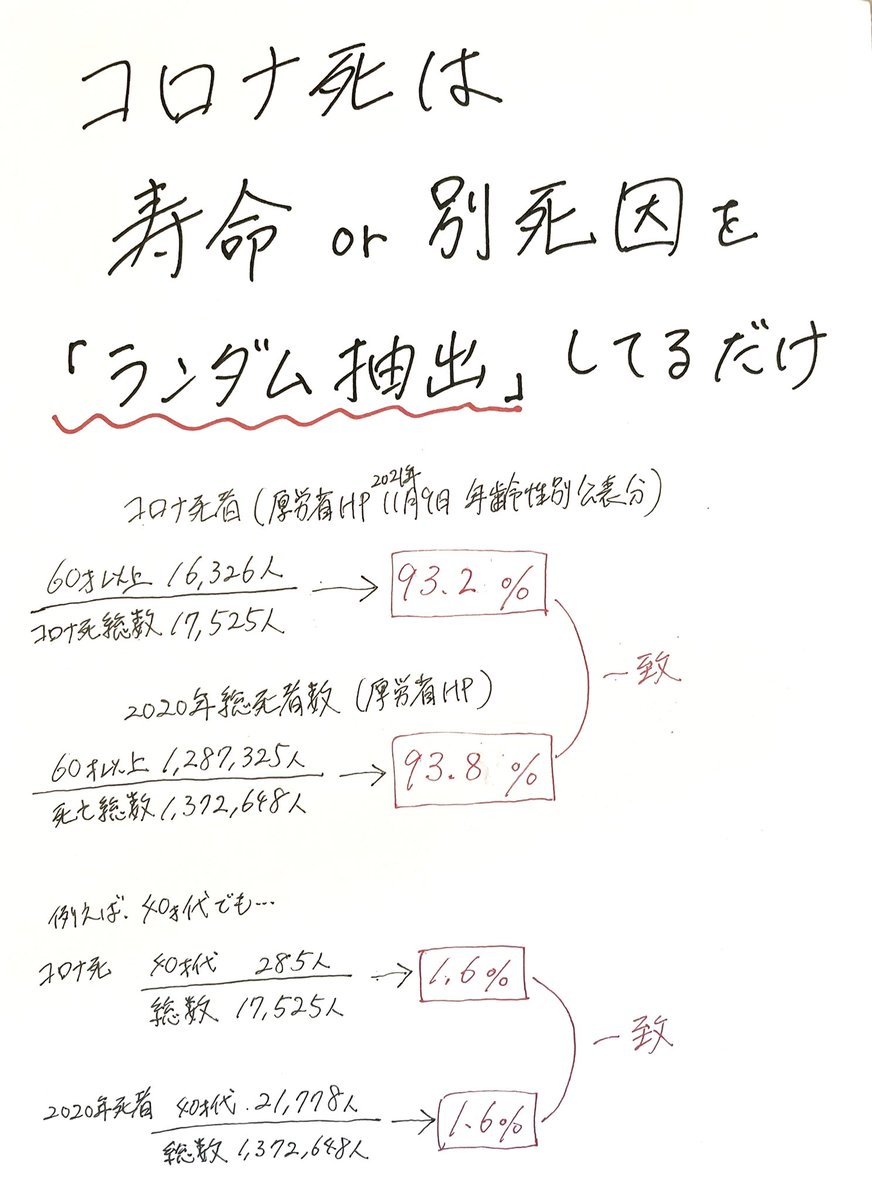 コロナ死は
寿命 or 別死因を
「ランダム抽出」してるだけ
コロナ死者(厚労省HP 2021年11月9日 年齢性別公表分)
60才以上 16,326人
コロナ死総数 17,525人
→ 93.2 %
一致
2020年総死者数(厚労省HP)
60才以上 1,287,325人
死亡総数 1,372,648人
→ 93.8 %
例えば、40才代でも…
コロナ死 40才代 285人
総数 17,525人
→ 1.6%
一致
2020年死者 40才代 21,778人
総数 1,372,648人
→ 1.6%